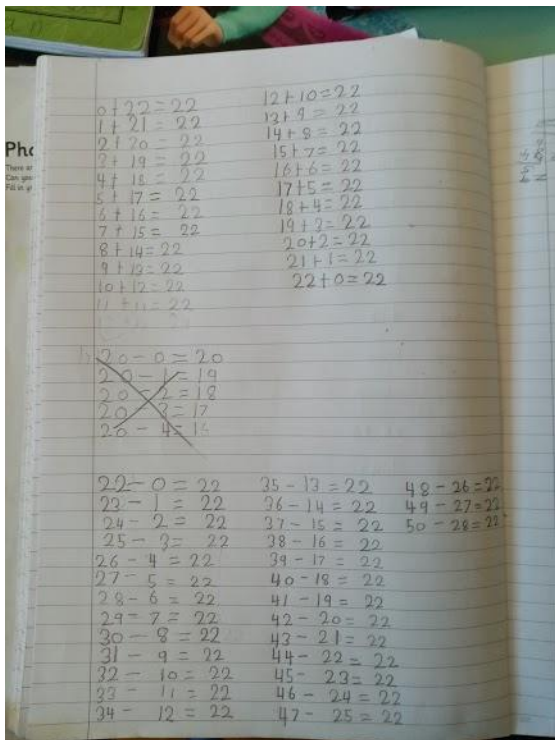 0+22=22
1+21=22
2+20=22
3+19=22
4+18=22
5+17=22
6+16=22
7+15=22
8+14=22
9+13=22
10+12=22
11+11=22
12+10=22
13+9=22
14+8=22
15+7=22
16+6=22
17+5=22
18+4=22
19+3=22
20+2=22
21+1=22
22+0=22
20-0=20
20-1=19
20-2=18
20-3=17
20-4=16
22-0=22
23-1=22
24-2=22
25-3=22
26-4=22
27-5=22
28-6=22
29-7=22
30-8=22
31-9=22
32-10=22
33-11=22
34-12=22
35-13=22
36-14=22
37-15=22
38-16=22
39-17=22
40-18=22
41-19=22
42-20=22
43-21=22
44-22=22
45-23=22
46-24=22
47-25=22
48-26=22
49-27=22
50-28=22